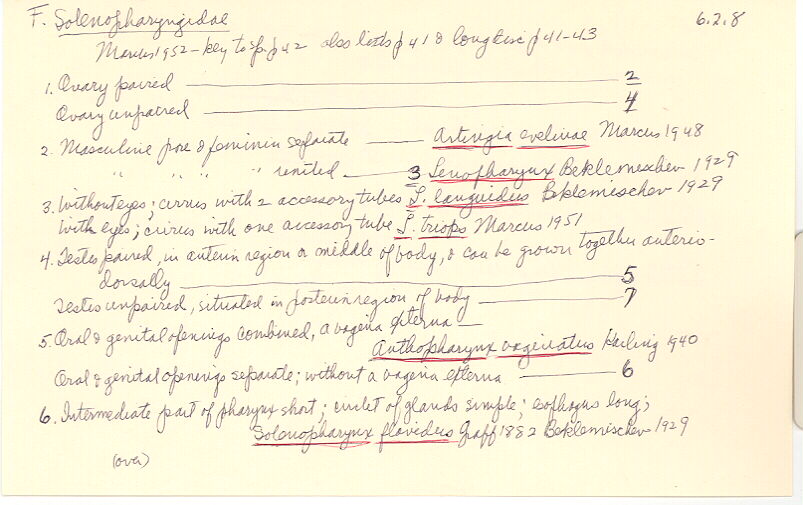 F. Solenopharyngidae 6.2.8
Marcus 1952 – key to sp. p 42 also lists p 41 & long disc p 41–43
1. Ovary paired 2
Ovary unpaired 4
2. Masculine pore & feminin separate Artinga evelinae Marcus 1948
" " " " united 3 Lenopharynx Beklemischev 1929
3. Without eyes; cirrus with 2 accessory tubes L. languidus Beklemeschev 1929
With eyes; cirrus with one accessory tube L. triops Marcus 1951
4. Testes paired, in anterior region or middle of body, & can be grown together anterio-
dorsally 5
Testes unpaired, situated in posterior region of body 7
5. Oral & genital openings combined, a vagina externa
Anthopharynx vaginatus Karling 1940
Oral & genital openings separate; without a vagina externa 6
6. Intermediate part of pharynx short; circlet of glands simple; esophagus long;
Solenopharynx flavidus Graff 1882 Beklemischev 1929
(over)